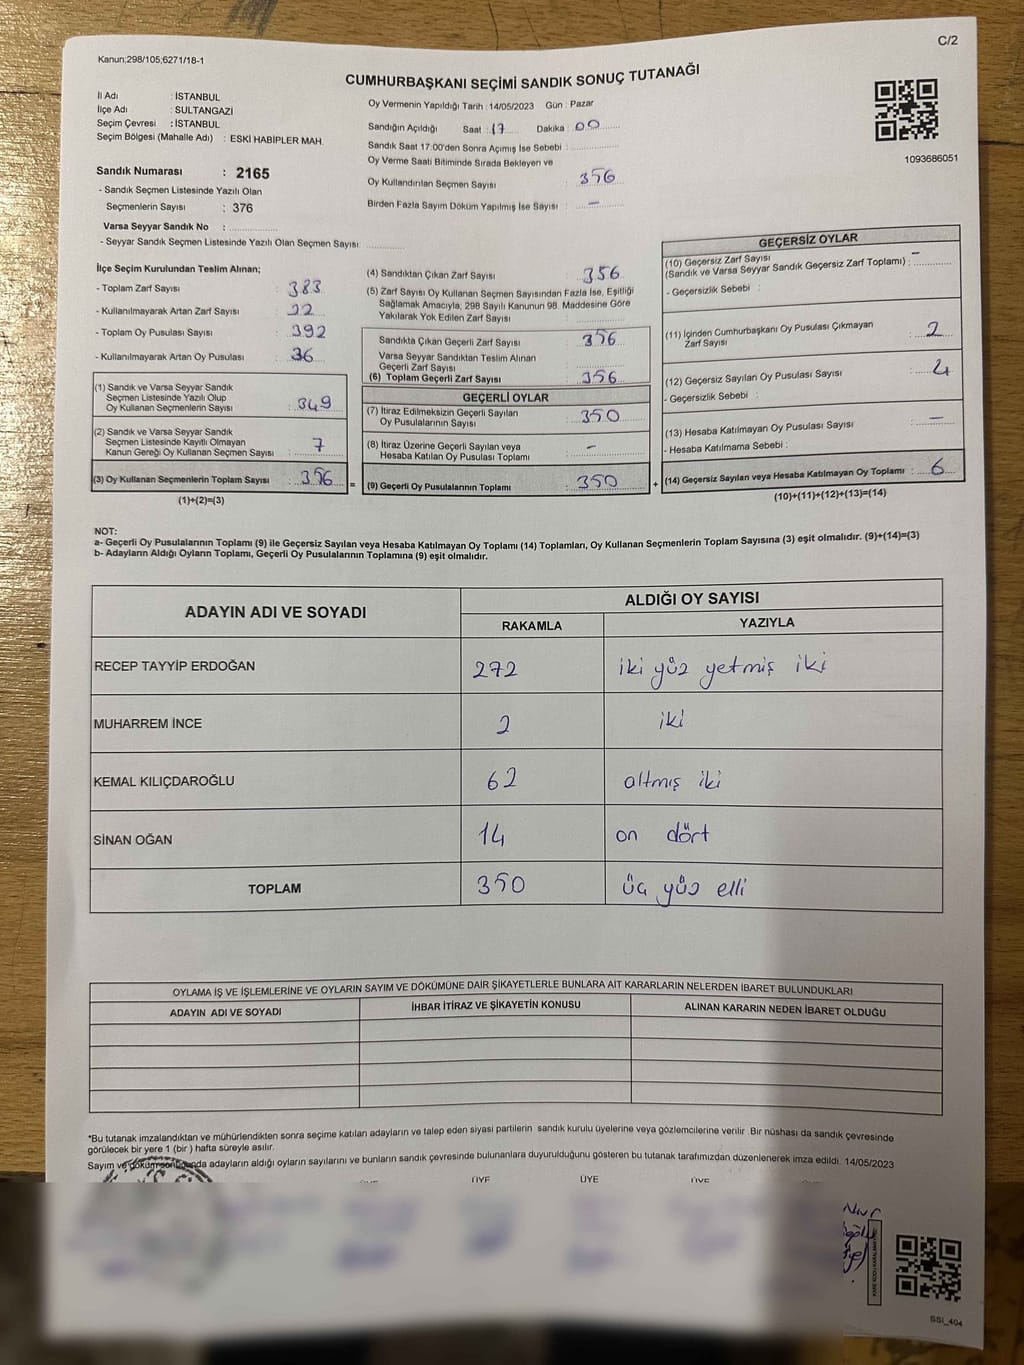 C/2
Kanun;298/105;6271/18-1
CUMHURBAŞKANI SEÇİMİ SANDIK SONUÇ TUTANAĞI
İl Adı : İSTANBUL
İlçe Adı : SULTANGAZİ
Seçim Çevresi : İSTANBUL
Seçim Bölgesi (Mahalle Adı) : ESKİ HABİPLER MAH.
Sandık Numarası : 2165
- Sandık Seçmen Listesinde Yazılı Olan
Seçmenlerin Sayısı : 376
Varsa Seyyar Sandık No :
- Seyyar Sandık Seçmen Listesinde Yazılı Olan Seçmen Sayısı:
Oy Vermenin Yapıldığı Tarih : 14/05/2023 Gün : Pazar
Sandığın Açıldığı Saat : 17 Dakika : 00
Sandık Saat 17:00'den Sonra Açımış İse Sebebi :
Oy Verme Saati Bitiminde Sırada Bekleyen ve
Oy Kullandırılan Seçmen Sayısı : 356
Birden Fazla Sayım Döküm Yapılmış İse Sayısı : -
1093686051
İlçe Seçim Kurulundan Teslim Alınan;
- Toplam Zarf Sayısı : 383
- Kullanılmayarak Artan Zarf Sayısı : 22
- Toplam Oy Pusulası Sayısı : 392
- Kullanılmayarak Artan Oy Pusulası : 36
(1) Sandık ve Varsa Seyyar Sandık
Seçmen Listesinde Yazılı Olup
Oy Kullanan Seçmenlerin Sayısı : 349
(2) Sandık ve Varsa Seyyar Sandık
Seçmen Listesinde Kayıtlı Olmayan
Kanun Gereği Oy Kullanan Seçmen Sayısı : 7
(3) Oy Kullanan Seçmenlerin Toplam Sayısı : 356 =
(1)+(2)=(3)
(4) Sandıktan Çıkan Zarf Sayısı : 356
(5) Zarf Sayısı Oy Kullanan Seçmen Sayısından Fazla İse, Eşitliği
Sağlamak Amacıyla, 298 Sayılı Kanunun 98. Maddesine Göre
Yakılarak Yok Edilen Zarf Sayısı :
Sandıkta Çıkan Geçerli Zarf Sayısı : 356
Varsa Seyyar Sandıktan Teslim Alınan
Geçerli Zarf Sayısı :
(6) Toplam Geçerli Zarf Sayısı : 356
GEÇERLİ OYLAR
(7) İtiraz Edilmeksizin Geçerli Sayılan
Oy Pusulalarının Sayısı : 350
(8) İtiraz Üzerine Geçerli Sayılan veya
Hesaba Katılan Oy Pusulası Toplamı : -
(9) Geçerli Oy Pusulalarının Toplamı : 350 +
GEÇERSİZ OYLAR
(10) Geçersiz Zarf Sayısı
(Sandık ve Varsa Seyyar Sandık Geçersiz Zarf Toplamı) : -
- Geçersizlik Sebebi :
(11) İçinden Cumhurbaşkanı Oy Pusulası Çıkmayan
Zarf Sayısı : 2
(12) Geçersiz Sayılan Oy Pusulası Sayısı : 4
- Geçersizlik Sebebi :
(13) Hesaba Katılmayan Oy Pusulası Sayısı : -
- Hesaba Katılmama Sebebi :
(14) Geçersiz Sayılan veya Hesaba Katılmayan Oy Toplamı : 6
(10)+(11)+(12)+(13)=(14)
NOT:
a- Geçerli Oy Pusulalarının Toplamı (9) ile Geçersiz Sayılan veya Hesaba Katılmayan Oy Toplamı (14) Toplamları, Oy Kullanan Seçmenlerin Toplam Sayısına (3) eşit olmalıdır. (9)+(14)=(3)
b- Adayların Aldığı Oyların Toplamı, Geçerli Oy Pusulalarının Toplamına (9) eşit olmalıdır.
ADAYIN ADI VE SOYADI ALDIĞI OY SAYISI
RAKAMLA YAZIYLA
RECEP TAYYİP ERDOĞAN 272 iki yüz yetmiş iki
MUHARREM İNCE 2 iki
KEMAL KILIÇDAROĞLU 62 altmış iki
SİNAN OĞAN 14 on dört
TOPLAM 350 üç yüz elli
OYLAMA İŞ VE İŞLEMLERİNE VE OYLARIN SAYIM VE DÖKÜMÜNE DAİR ŞİKAYETLERLE BUNLARA AİT KARARLARIN NELERDEN İBARET BULUNDUKLARI
ADAYIN ADI VE SOYADI İHBAR İTİRAZ VE ŞİKAYETİN KONUSU ALINAN KARARIN NEDEN İBARET OLDUĞU
*Bu tutanak imzalandıktan ve mühürlendikten sonra seçime katılan adayların ve talep eden siyasi partilerin sandık kurulu üyelerine veya gözlemcilerine verilir. Bir nüshası da sandık çevresinde
görülecek bir yere 1 (bir) hafta süreyle asılır.
Sayım ve döküm sonucunda adayların aldığı oyların sayılarını ve bunların sandık çevresinde bulunanlara duyurulduğunu gösteren bu tutanak tarafımızdan düzenlenerek imza edildi. 14/05/2023
ÜYE ÜYE ÜYE
SSİ_404